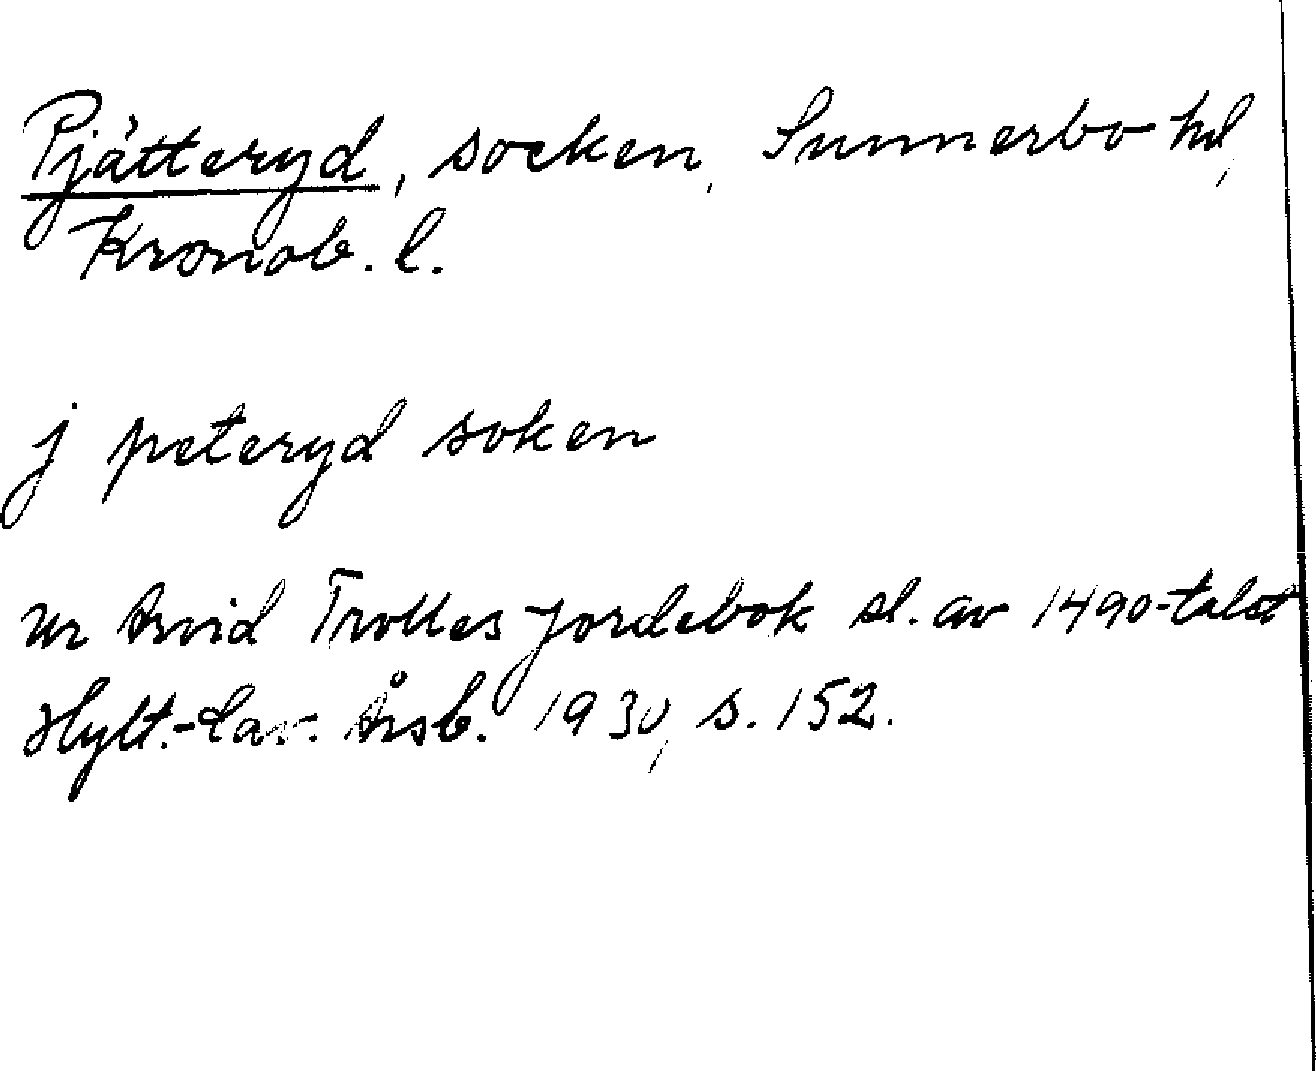 Pjätteryd, socken, Sunnerbo hd,
Kronob. l.
j peteryd soken
ur Arvid Trolles jordebok sl. av 1490-talet
Hylt.-Cav. Årsb. 1930, s. 152.